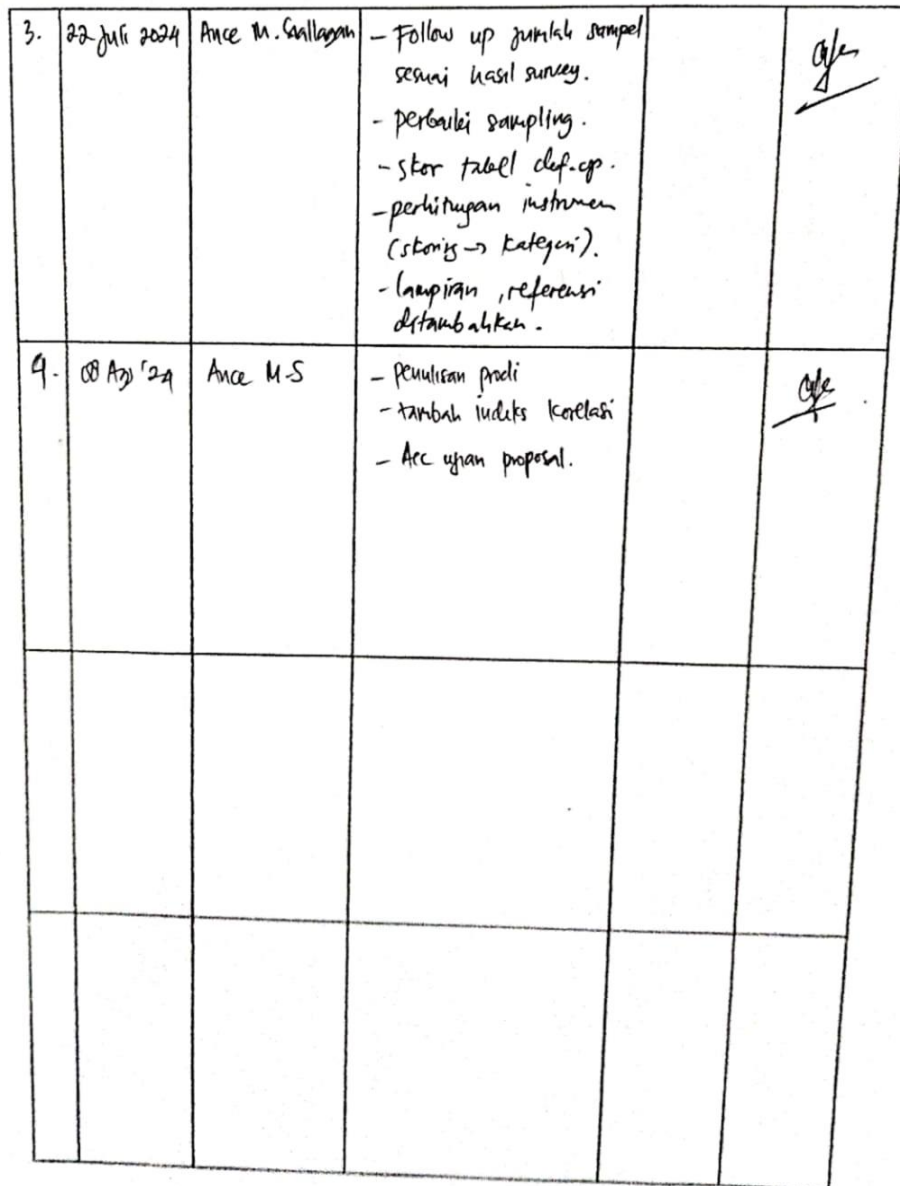 3. 22 Juli 2024 Ance M. - Follow up jumlah sampel
sesuai hasil survey.
- perbaiki sampling.
- skor tabel def.op.
- perhitungan instrumen
(skoring → kategori).
- lampiran, referensi
ditambahkan.
4. 08 '24 Ance M.S - penulisan prodi
- tambah indeks korelasi
- Acc ujian proposal.